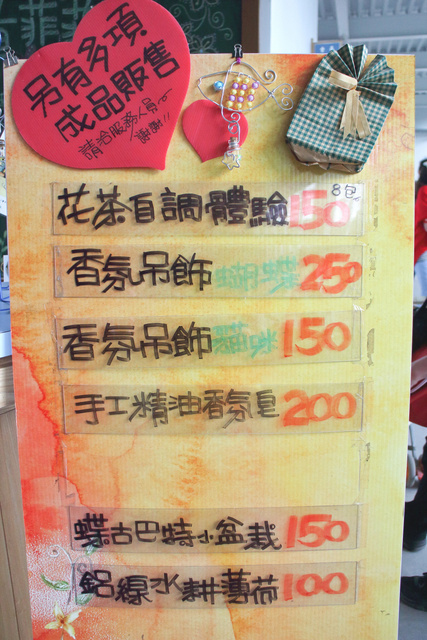 另有多項
成品販售
請洽服務人員
謝謝!!
8包
花茶自調體驗150
香氛吊飾 蝴蝶 250
香氛吊飾 貓咪 150
手工精油香氛皂200
蝶古巴特小盆栽150
鋁線水耕薄荷100